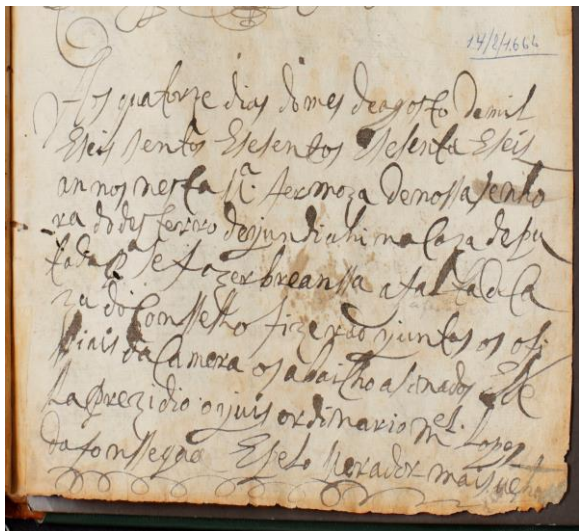 14/8/1666
Aos quatorze dias do mes de agosto de mil
E seis sentos E sesentos E sesenta E seis
annos nesta v.ª fermoza de nossa senho
ra do desterro de jundiahi na Caza depu
tada p.ª se fazer breanssa a falta da Ca
za do Consselho fizerão juntos os ofi
siais da Camera os abaixo asinados
prezidio o juis ordinario M.el Lopez
da fonssequa E pelo prerador mais